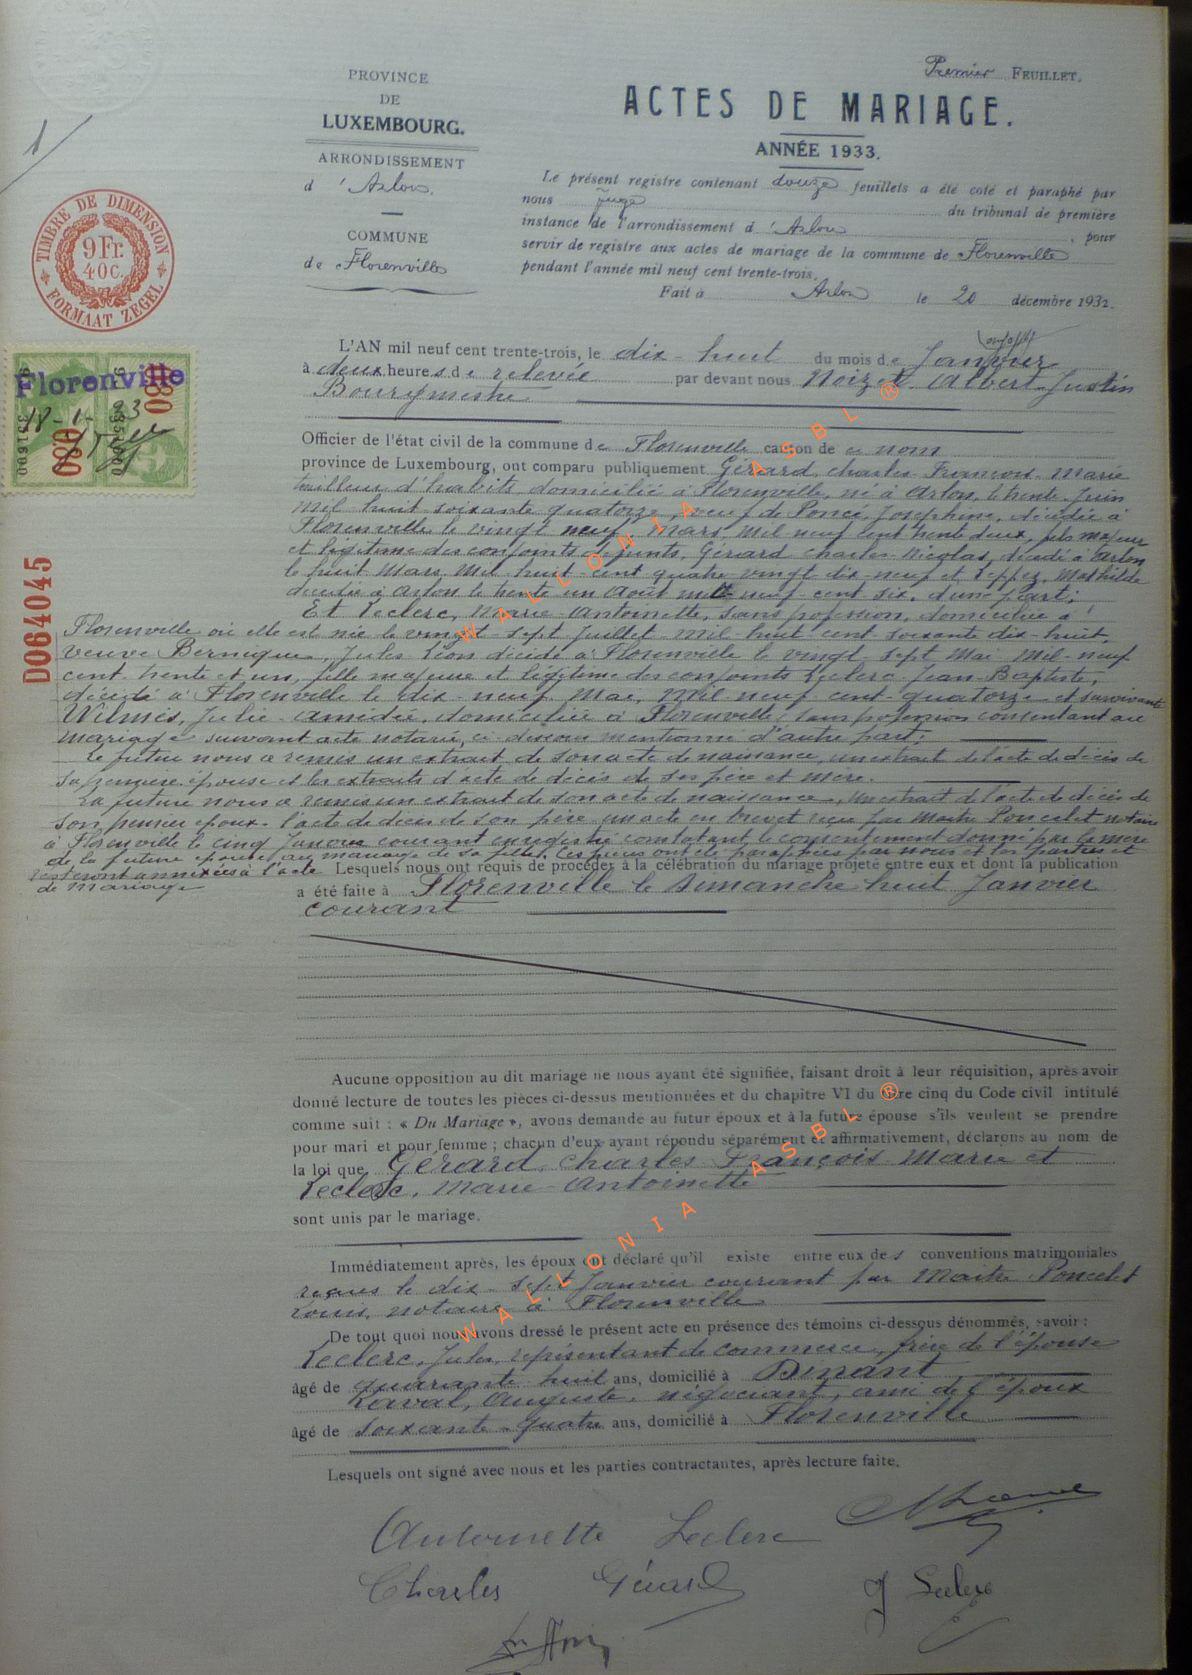 Premier FEUILLET.
PROVINCE
DE
LUXEMBOURG.
ARRONDISSEMENT
d'Arlon.
COMMUNE
de Florenville
ACTES DE MARIAGE.
ANNÉE 1933.
Le présent registre contenant douze feuillets a été coté et paraphé par
nous juge du tribunal de première
instance de l'arrondissement d'Arlon, pour
servir de registre aux actes de mariage de la commune de Florenville
pendant l'année mil neuf cent trente-trois.
Fait à Arlon le 20 décembre 1932.
1
TIMBRE DE DIMENSION
9 Fr.
40 C.
FORMAAT ZEGEL
Florenville
18-1-33
D064045
L'AN mil neuf cent trente-trois, le dix-huit du mois de Janvier
à deux heures de relevée par devant nous Noizet Albert Justin
Bourgmestre
Officier de l'état civil de la commune de Florenville canton de ce nom
province de Luxembourg, ont comparu publiquement Gérard, Charles François Marie
tailleur d'habits domicilié à Florenville, né à Arlon, le trente Juin
mil huit soixante quatorze, veuf de Poncé, Joséphine, décédée à
Florenville le vingt neuf Mars, mil neuf cent trente deux, fils majeur
et légitime des conjoints défunts, Gérard Charles Nicolas, décédé à Arlon
le huit Mars mil huit cent quatre vingt dix neuf et Reppez, Mathilde
décédée à Arlon le trente un Août mil neuf cent six, d'une part;
Et Leclerc, Marie-Antoinette, sans profession, domiciliée à
Florenville où elle est née le vingt-sept Juillet mil huit cent soixante dix-huit,
veuve Bernique, Jules Léon décédé à Florenville le vingt sept Mai mil-neuf
cent trente et un, fille majeure et légitime des conjoints Leclerc Jean-Baptiste,
décédé à Florenville le dix-neuf Mai, mil neuf cent quatorze et survivante
Wilmès, Julie Amidée, domiciliée à Florenville, sans profession consentant au
mariage suivant acte notarié, ci-dessous mentionné d'autre part;
Le futur nous a remis un extrait de son acte de naissance, un extrait de l'acte de décès de
sa première épouse et les extraits d'acte de décès de ses père et mère.
La future nous a remis un extrait de son acte de naissance, un extrait de l'acte de décès de
son premier époux, l'acte de décès de son père un acte en brevet reçu par Maître Poncelet notaire
à Florenville le cinq Janvier courant enregistré constatant le consentement donné par la mère
de la future épouse au mariage de sa fille. Ces pièces ont été paraphées par nous et les parties et
resteront annexées à l'acte Lesquels nous ont requis de procéder à la célébration du mariage projeté entre eux et dont la publication
de mariage
a été faite à Florenville le Dimanche huit Janvier
courant
Aucune opposition au dit mariage ne nous ayant été signifiée, faisant droit à leur réquisition, après avoir
donné lecture de toutes les pièces ci-dessus mentionnées et du chapitre VI du titre cinq du Code civil intitulé
comme suit : « Du Mariage », avons demande au futur époux et à la future épouse s'ils veulent se prendre
pour mari et pour femme ; chacun d'eux ayant répondu séparément et affirmativement, déclarons au nom de
la loi que Gérard, Charles François Marie et
Leclerc, Marie-Antoinette
sont unis par le mariage.
Immédiatement après, les époux ont déclaré qu'il existe entre eux des conventions matrimoniales
reçues le dix-sept Janvier courant par Maître Poncelet
Louis, notaire à Florenville
De tout quoi nous avons dressé le présent acte en présence des témoins ci-dessous dénommés, savoir :
Leclerc, Jules, représentant de commerce, frère de l'épouse
âgé de quarante huit ans, domicilié à Dinant
Laval, Auguste, négociant, ami de l'époux
âgé de soixante-quatre ans, domicilié à Florenville
Lesquels ont signé avec nous et les parties contractantes, après lecture faite.
Antoinette Leclerc
Charles Gérard
J Leclerc
WALLONIA ASBL ®
WALLONIA ASBL ®